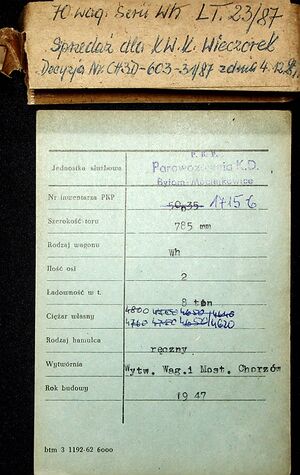 70 wag. Serii Wh LT. 23/87
Sprzedaż dla KW.K. Wieczorek
Decyzja Nr. CH3D-603-31/87 z dnia 4.12.87
P. K. P.
Jednostka służbowa Parowozownia K.D.
Bytom-Maciejkowice
Nr inwentarza PKP 17156
Szerokość toru 785 mm
Rodzaj wagonu Wh
Ilość osi 2
Ładowność w t. 8 ton
4800 4640
Ciężar własny
4760 4650 4620
Rodzaj hamulca ręczny
Wytwórnia Wytw. Wag. i Most. Chorzów
Rok budowy 1947
btm 3 1192-62 6000